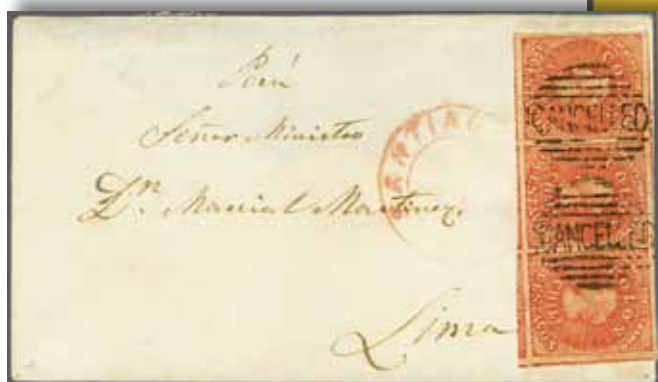 Perú
Señor Ministro
Dn. Marcial Martinez.
Lima
SANTIAGO
CANCELLED
CANCELLED
COLON